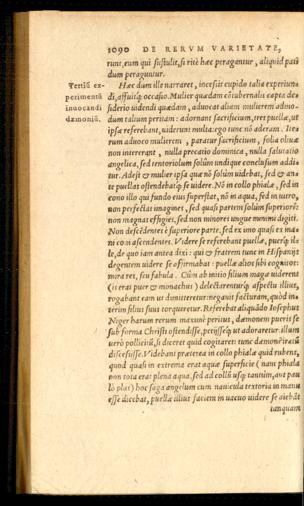 1090 DE RERVM VARIETATE,
runt, eum qui sustulit, si ritè hæc peragantur, aliquid pati
dum peraguntur.
Tertiũ ex-
perimentũ
inuocandi
dæmoniũ.
Hæc dum ille narraret, incessit cupido talia experiun
di, affuitq́; occasio. Mulier quædam cõtubernalis capta de-
siderio uidendi quædam, aduocat aliam mulierem admo-
dum talium peritam: adornant sacrificium, tres puellæ, ut
ipsæ referebant, uiderunt multa: ego tunc nõ aderam. Ite
rum aduoco mulierem, paratur sacrificium, folia oliuæ
non intererant, nulla precatio dominica, nulla salutatio
angelica, sed tentoriolum solùm undique conclusum addi
tur. Adest & mulier ipsa quæ nõ solùm uidebat, sed & an
te puellas ostendebat q̃ se uidere. Nõ in collo phialæ, sed in
cono illo qui fundo eius superest, nõ in aqua, sed in
non perfectas imagines, sed quasi partem solùm superiorẽ:
non magnas effigies, sed non minores ungue minimi digiti.
Non descẽderet è superiore parte, sed ex uno quasi ex ma
ni co ascendentes. Videre se referebant puellæ, puerũq́; il
le, de quo iam antea dixi: quo & fratrem tunc in Hispanijs
degentem uidere se affirmabat: puellæ alios sibi cognitos:
mira res, seu fabula. Cùm ab initio filium maga uiderent
(is erat puer & monachus) delectarenturq́; aspectu illius,
rogabant eam ut dimitteretur: negauit facturam, quòd in-
terim filius suus torqueretur. Referebat aliquãdo Iosephus
Niger harum rerum maximè peritus, dæmonem pueris se
sub forma Christi ostendisse, petijsseq́; ut adoraretur: illum
uerò pollicitũ, si diceret quid cogitaret: tunc dæmonẽ iratũ
discessisse. Videbant præterea in collo phialæ quid rubens,
quod quasi in extrema erat aquæ superficie (nam phiala
non tota erat plena aqua, sed ad collũ usq́; tantùm, aut pau
lò plus) hoc saga angelum cum nauicula textoria in manu
esse dicebat, puellæ illius faciem in uacuo uidere se aiebãt
tanquam